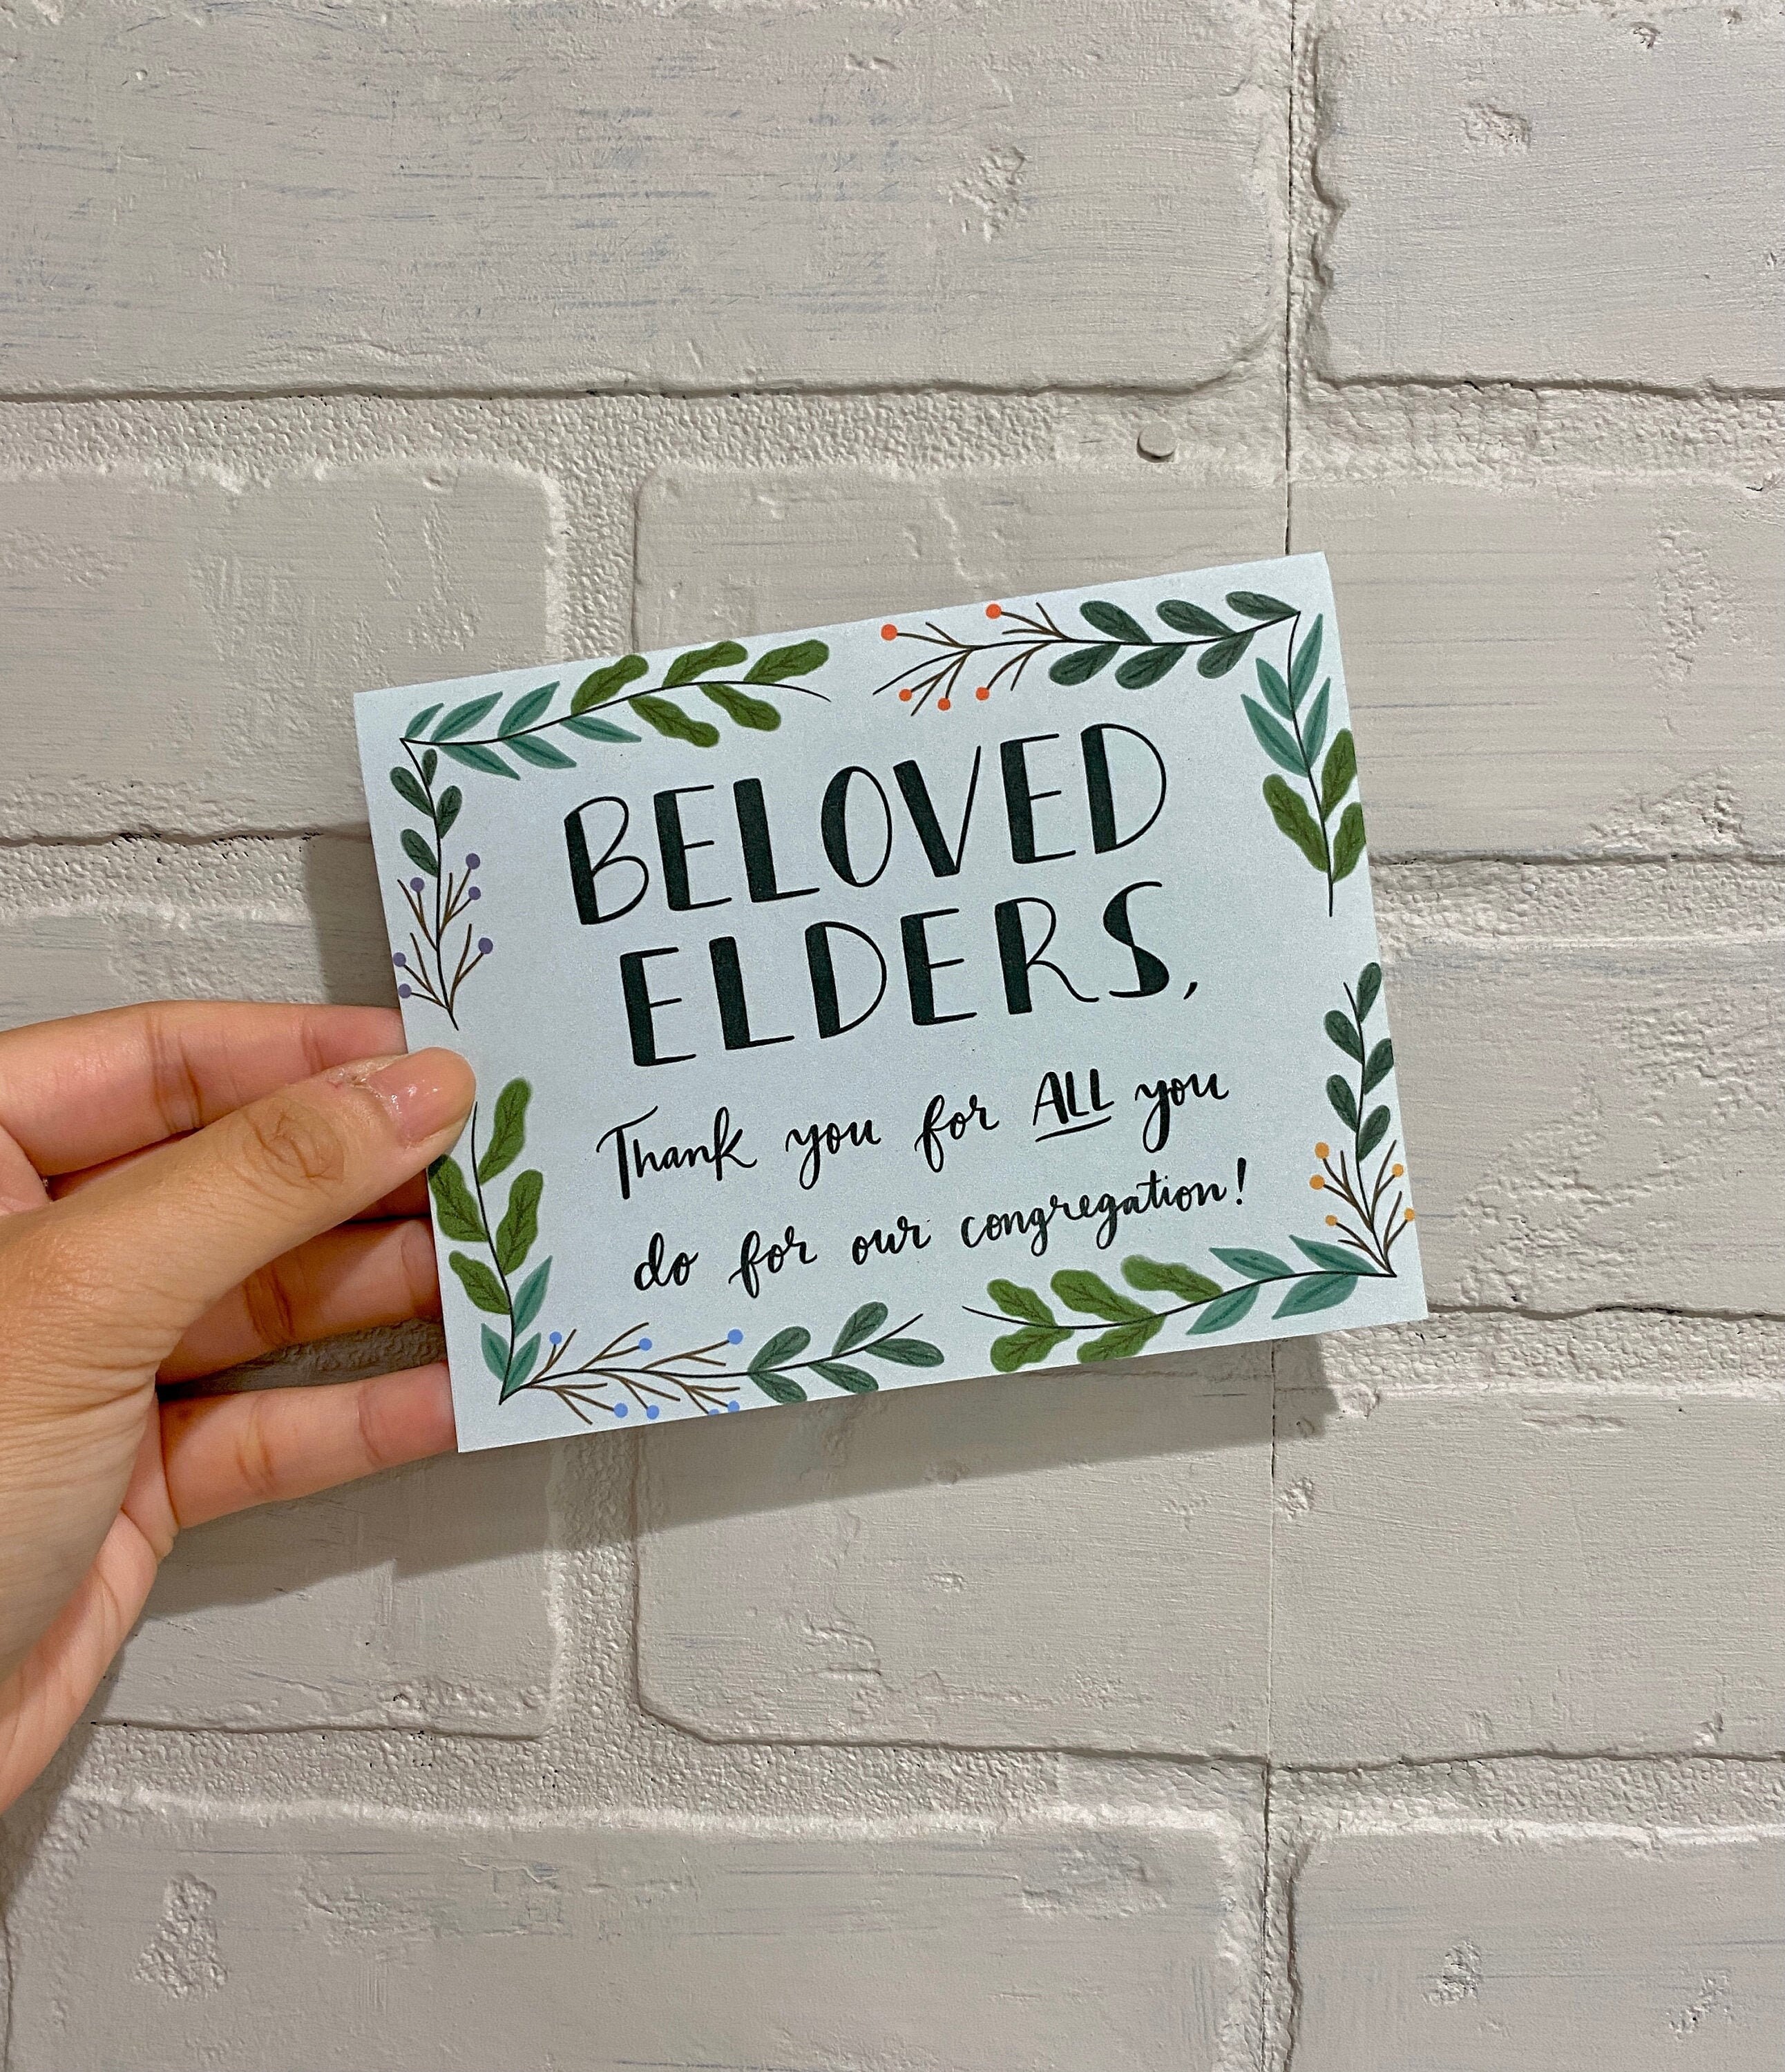 BELOVED
ELDERS,
Thank you for ALL you
do for our congregation!